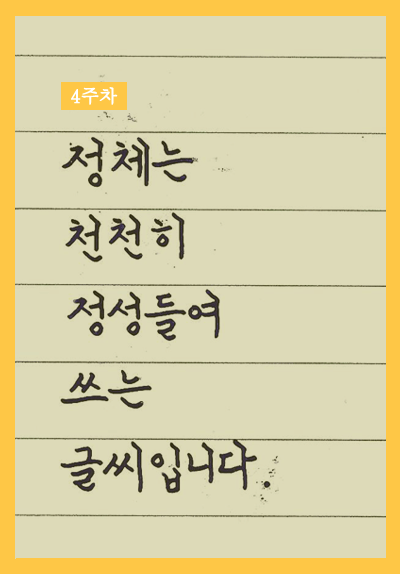 4주차
정체는
천천히
정성들여
쓰는
글씨입니다.